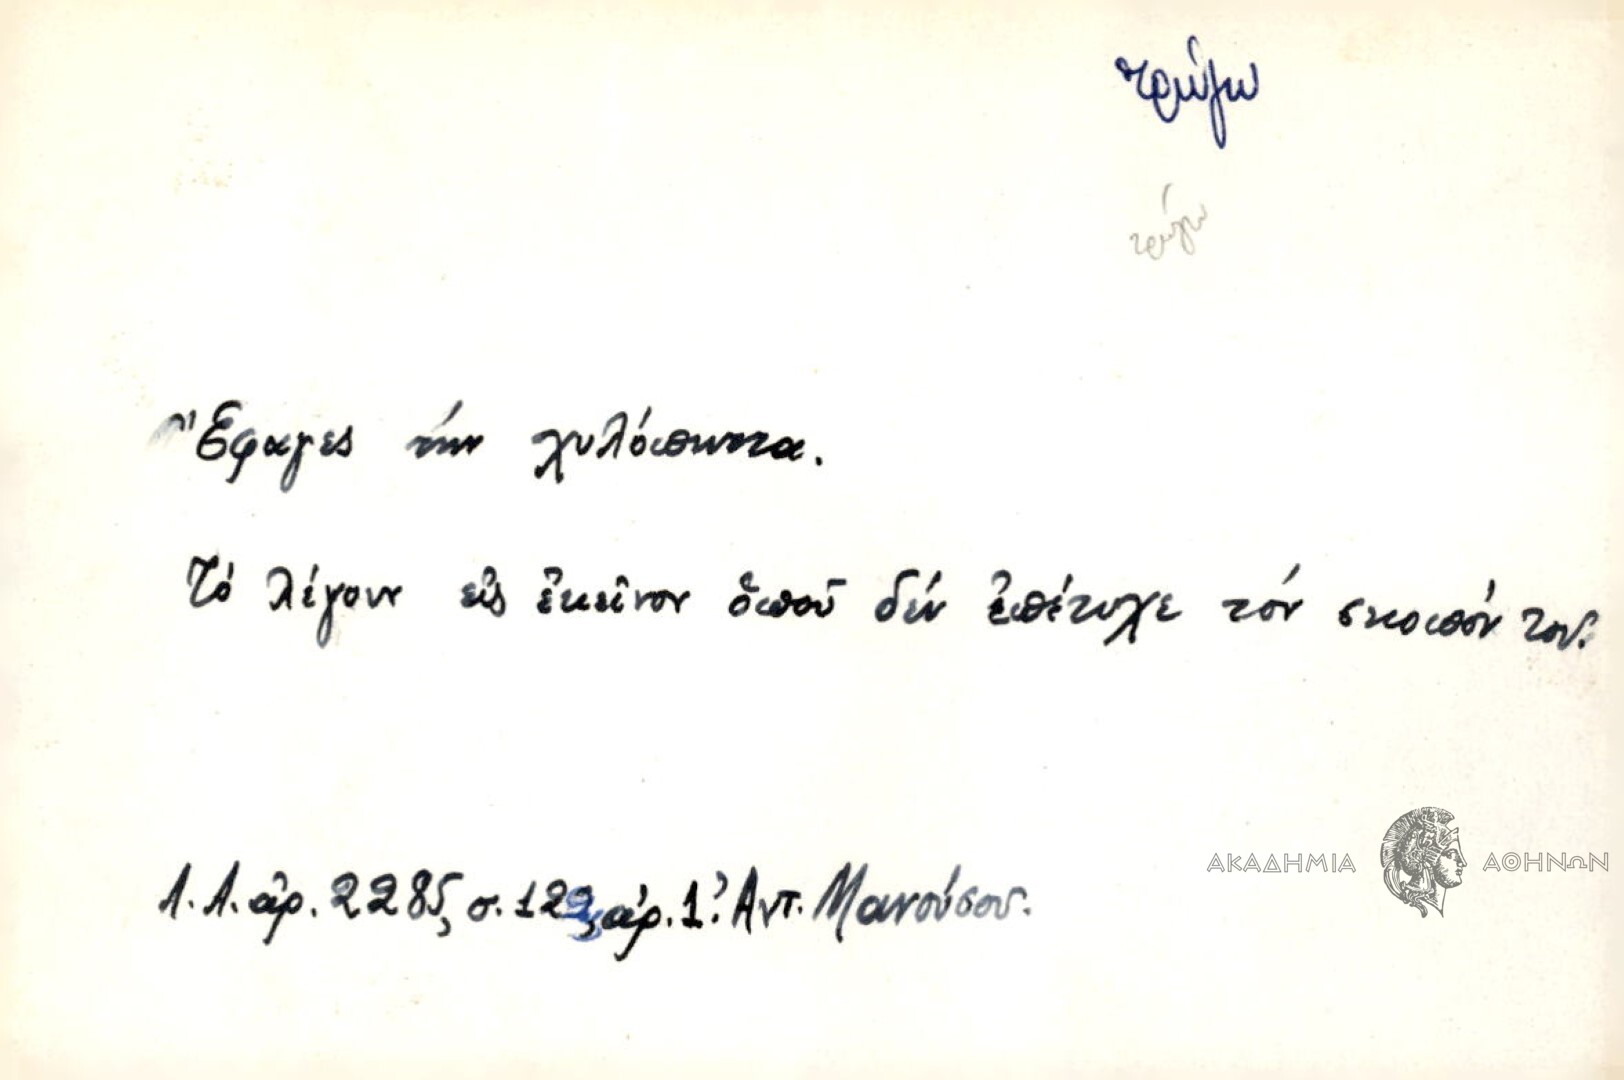 τρώγω
τρώγω
Ἔφαγες τήν χυλόπιττα.
Τό λέγουν εἰς ἐκεῖνον ὁποῦ δέν ἐπέτυχε τόν σκοπόν του.
ΑΚΑΔΗΜΙΑ ΑΘΗΝΩΝ
Λ.Λ. ἀρ. 2285, σ. 122, ἀρ. 1. Ἀντ. Μανούσου.